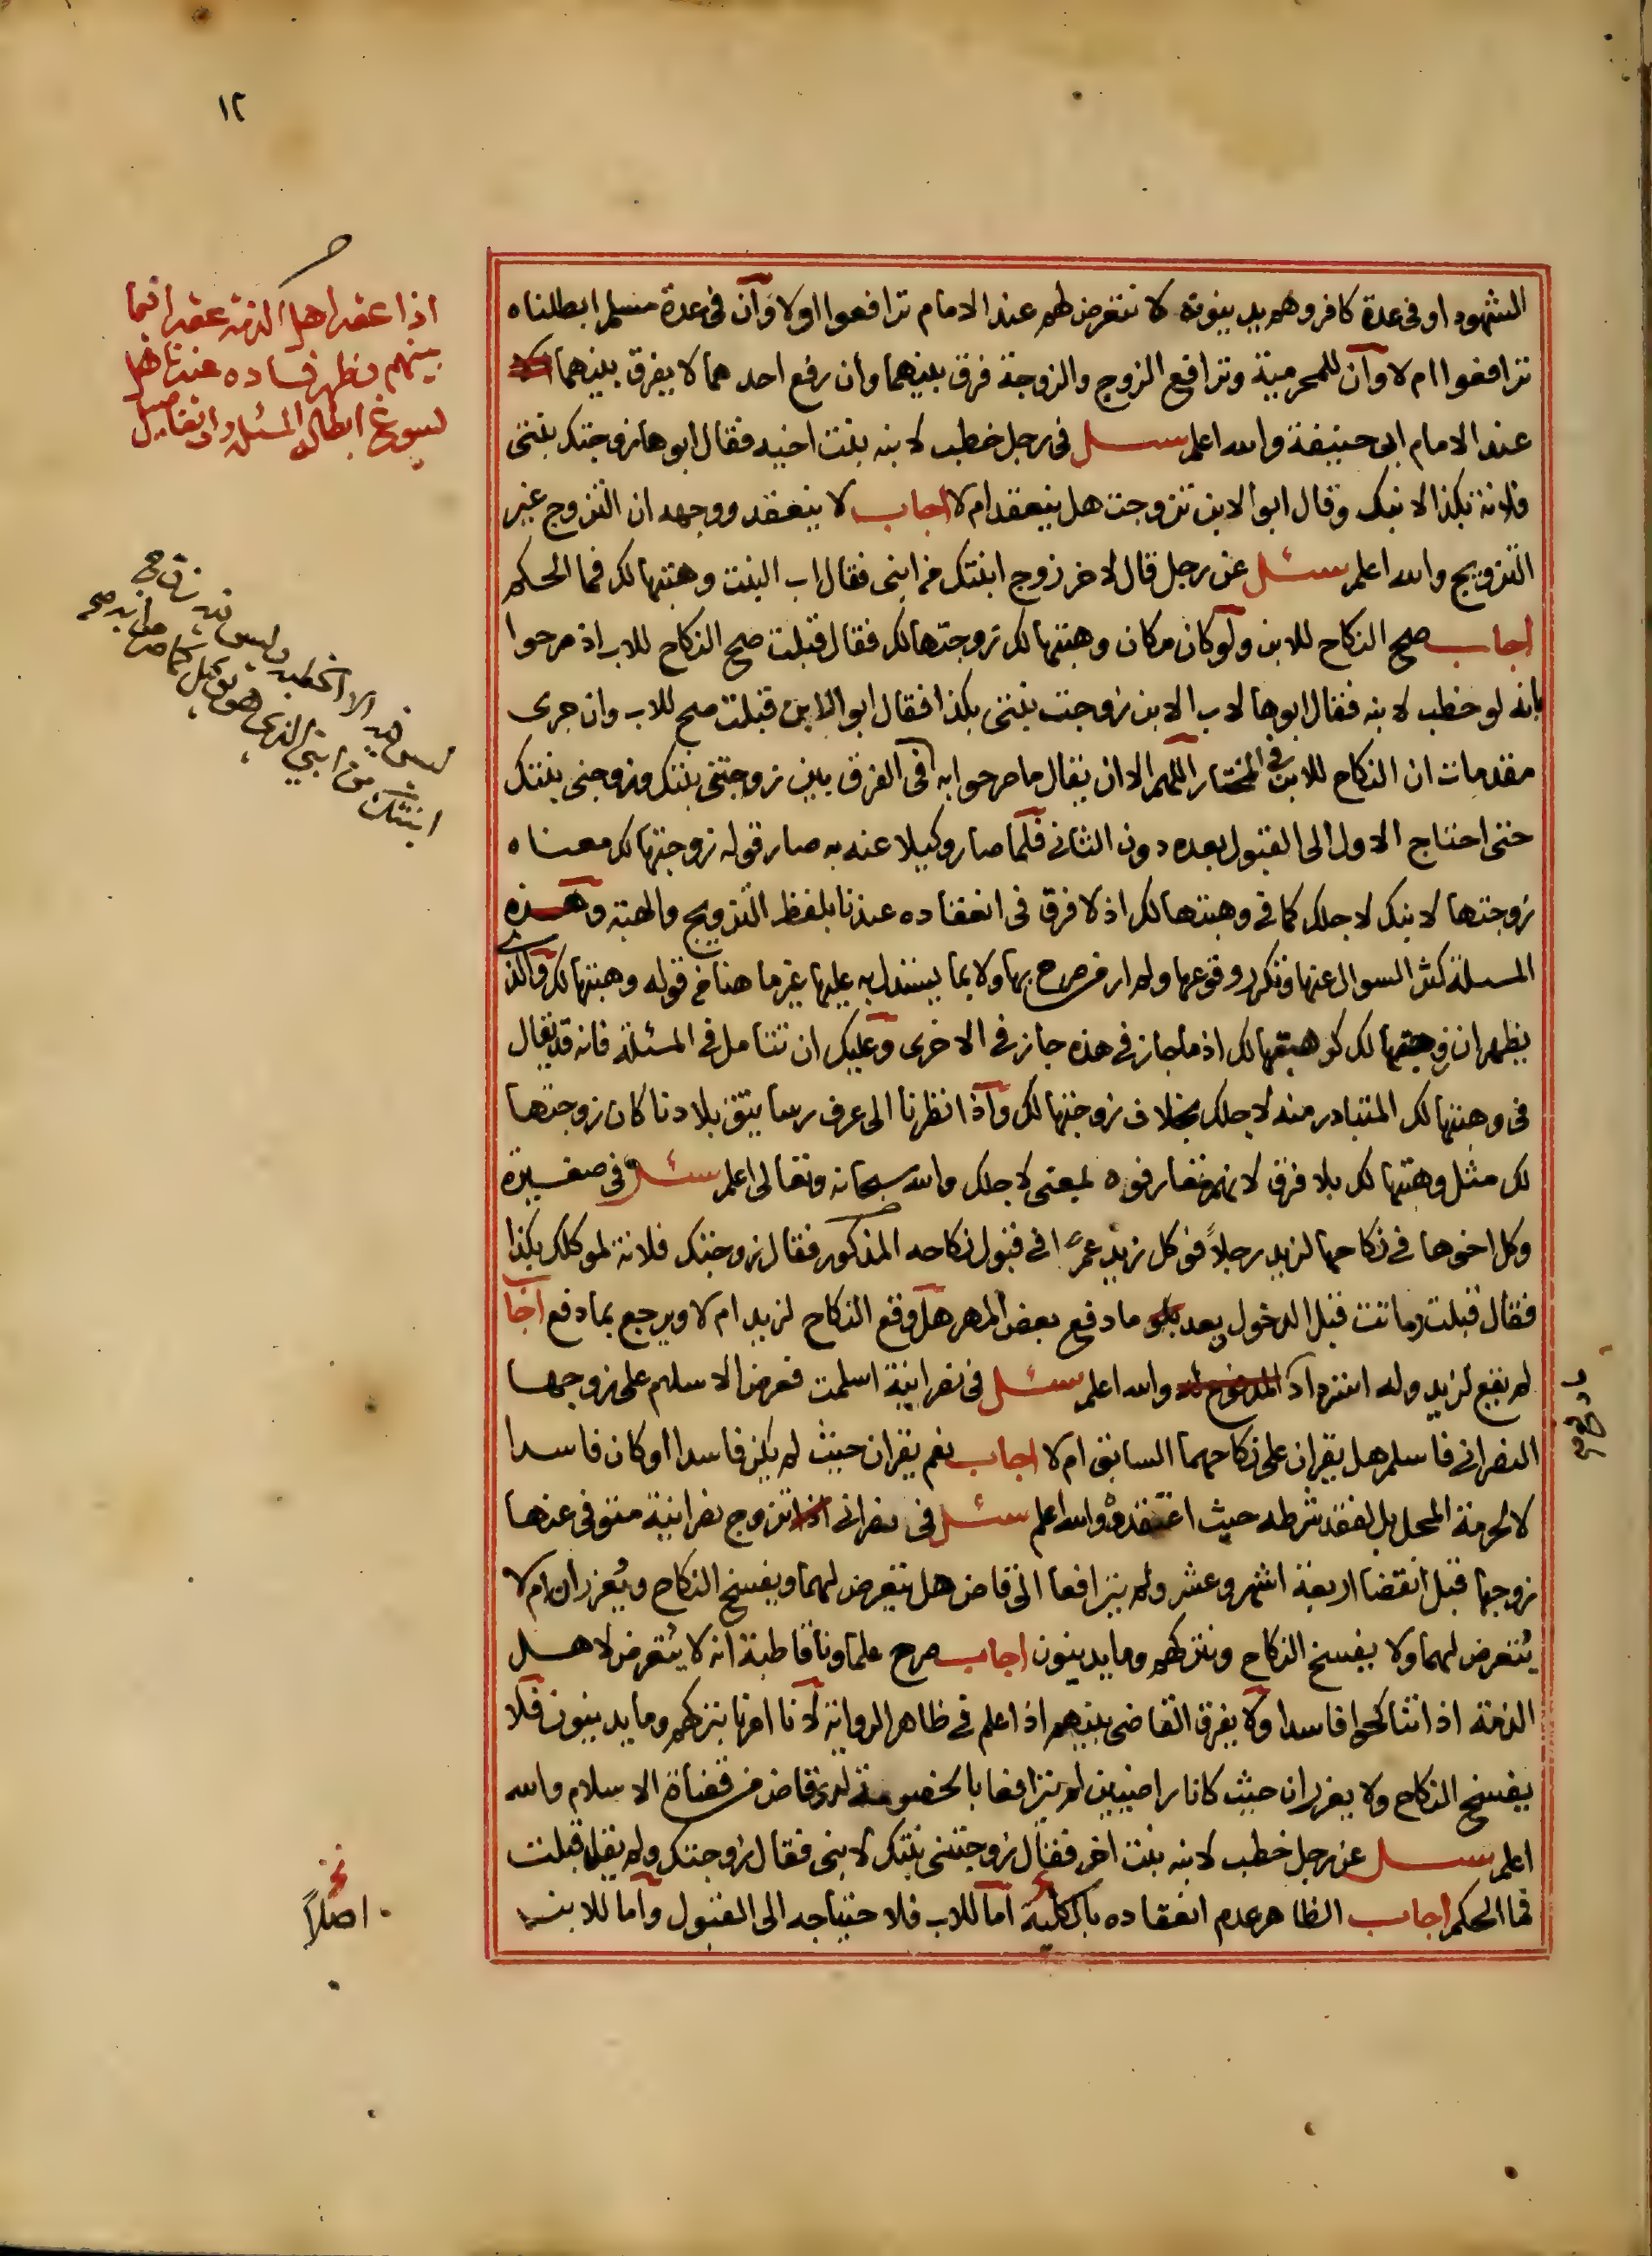 ١٢
الشهود او فى عدة كافر وهم يدينونه لا نتعرض لهم عند الامام ترافعوا اولا وان فى عدة مسلم ابطلناه
ترافعوا ام لا وان للمحرمية وترافع الزوج والزوجة فرق بينهما وان رفع احدهما لا يفرق بينهما
عند الامام ابى حنيفة والله اعلم سئل فى رجل خطب لابنه بنت اخيه فقال ابوها زوجتك بنتى
فلانة بكذا لابنك وقال ابو الابن تزوجت هل ينعقد ام لا اجاب لا ينعقد ووجهه ان التزوج غير
التزويج والله اعلم سئل عن رجل قال لاخر زوج ابنتك من ابنى فقال اب البنت وهبتها لك فما الحكم
اجاب صح النكاح للابن ولو كان مكان وهبتها لك زوجتها لك فقال قبلت صح النكاح للاب اذ صرحوا
بانه لو خطب لابنه فقال ابوها لاب الابن زوجت بنتى بكذا فقال ابو الابن قبلت صح للاب وان جرى
مقدمات ان النكاح للابن فى المختار اللهم الا ان يقال ما صرحوا به فى الفرق بين زوجتنى بنتك وزوجنى بنتك
حتى احتاج الاول الى القبول بعده دون الثانى فلما صار وكيلا عنه به صار قوله زوجتها لك معناه
زوجتها لابنك لاجلك كما فى وهبتها لك اذ لا فرق فى انعقاده عندنا بلفظ التزويج والهبة وهذه
المسئلة كثر السوال عنها وتكرر وقوعها ولم ار من صرح بها ولا بما يستدل به عليها غير ما هنا من قوله وهبتها لك والذى
يظهر ان زوجتها لك كوهبتها لك اذ ما جاز فى هذه جاز فى الاخرى وعليك ان تتامل فى المسئلة فانه قد يقال
فى وهبتها لك المتبادر منه لاجلك بخلاف زوجتها لك واذا نظرنا الى عرف رساتيق بلادنا كان زوجتها
لك مثل وهبتها لك بلا فرق لانهم تعارفوه بمعنى لاجلك والله سبحانه وتعالى اعلم سئل فى صغيرة
وكل اخوها فى نكاحها لزيد رجلاً فوكل زيد عمرًا فى قبول نكاحه المذكور فقال زوجتك فلانة لموكلك بكذا
فقال قبلت وماتت قبل الدخول وبعد ما دفع بعض المهر هل وقع النكاح لزيد ام لا ويرجع بما دفع اجا
لم يقع لزيد وله استرداد والله اعلم سئل فى نصرانية اسلمت فعرض الاسلام على زوجها
النصرانى فاسلم هل يقران على نكاحهما السابق ام لا اجاب نعم يقران حيث لم يكن فاسدا او كان فاسدا
لا لحرمة المحل بل لفقد شرطه حيث اعتقدوه والله اعلم سئل فى نصرانى تزوج نصرانية متوفى عنها
زوجها قبل انقضا اربعة اشهر وعشر ولم يترافعا الى قاض هل نتعرض لهما ويفسخ النكاح ويُعزران ام لا
يُتعرض لهما ولا يفسخ النكاح ونتركهم وما يدينون اجاب صرح علماونا قاطبة انه لا يُتعرض لاهل
الذمة اذا تناكحوا فاسدا ولا يفرق القاضى بينهم اذا علم فى ظاهر الرواية لانا امرنا بتركهم وما يدينون فلا
يفسخ النكاح ولا يعزران حيث كانا راضيين لم يترافعا بالخصومة لدى قاض من قضاة الاسلام والله
اعلم سئل عن رجل خطب لابنه بنت اخر فقال زوجتنى بنتك لابنى فقال زوجتك ولم يقل قبلت
فما الحكم اجاب الظاهر عدم انعقاده بالكلية اما للاب فلاحتياجه الى القبول واما للابن
اذا عقد اهل الذمة عقدا فيما
بينهم وظهر فساده عندنا هل
يسوغ ابطاله المسئلة ذات تفاصيل
ليس فيه الا الخطبة وليس فيه زوج
ابنتك من ابنى الذى هو توكيل كما صرح به
اصلاً